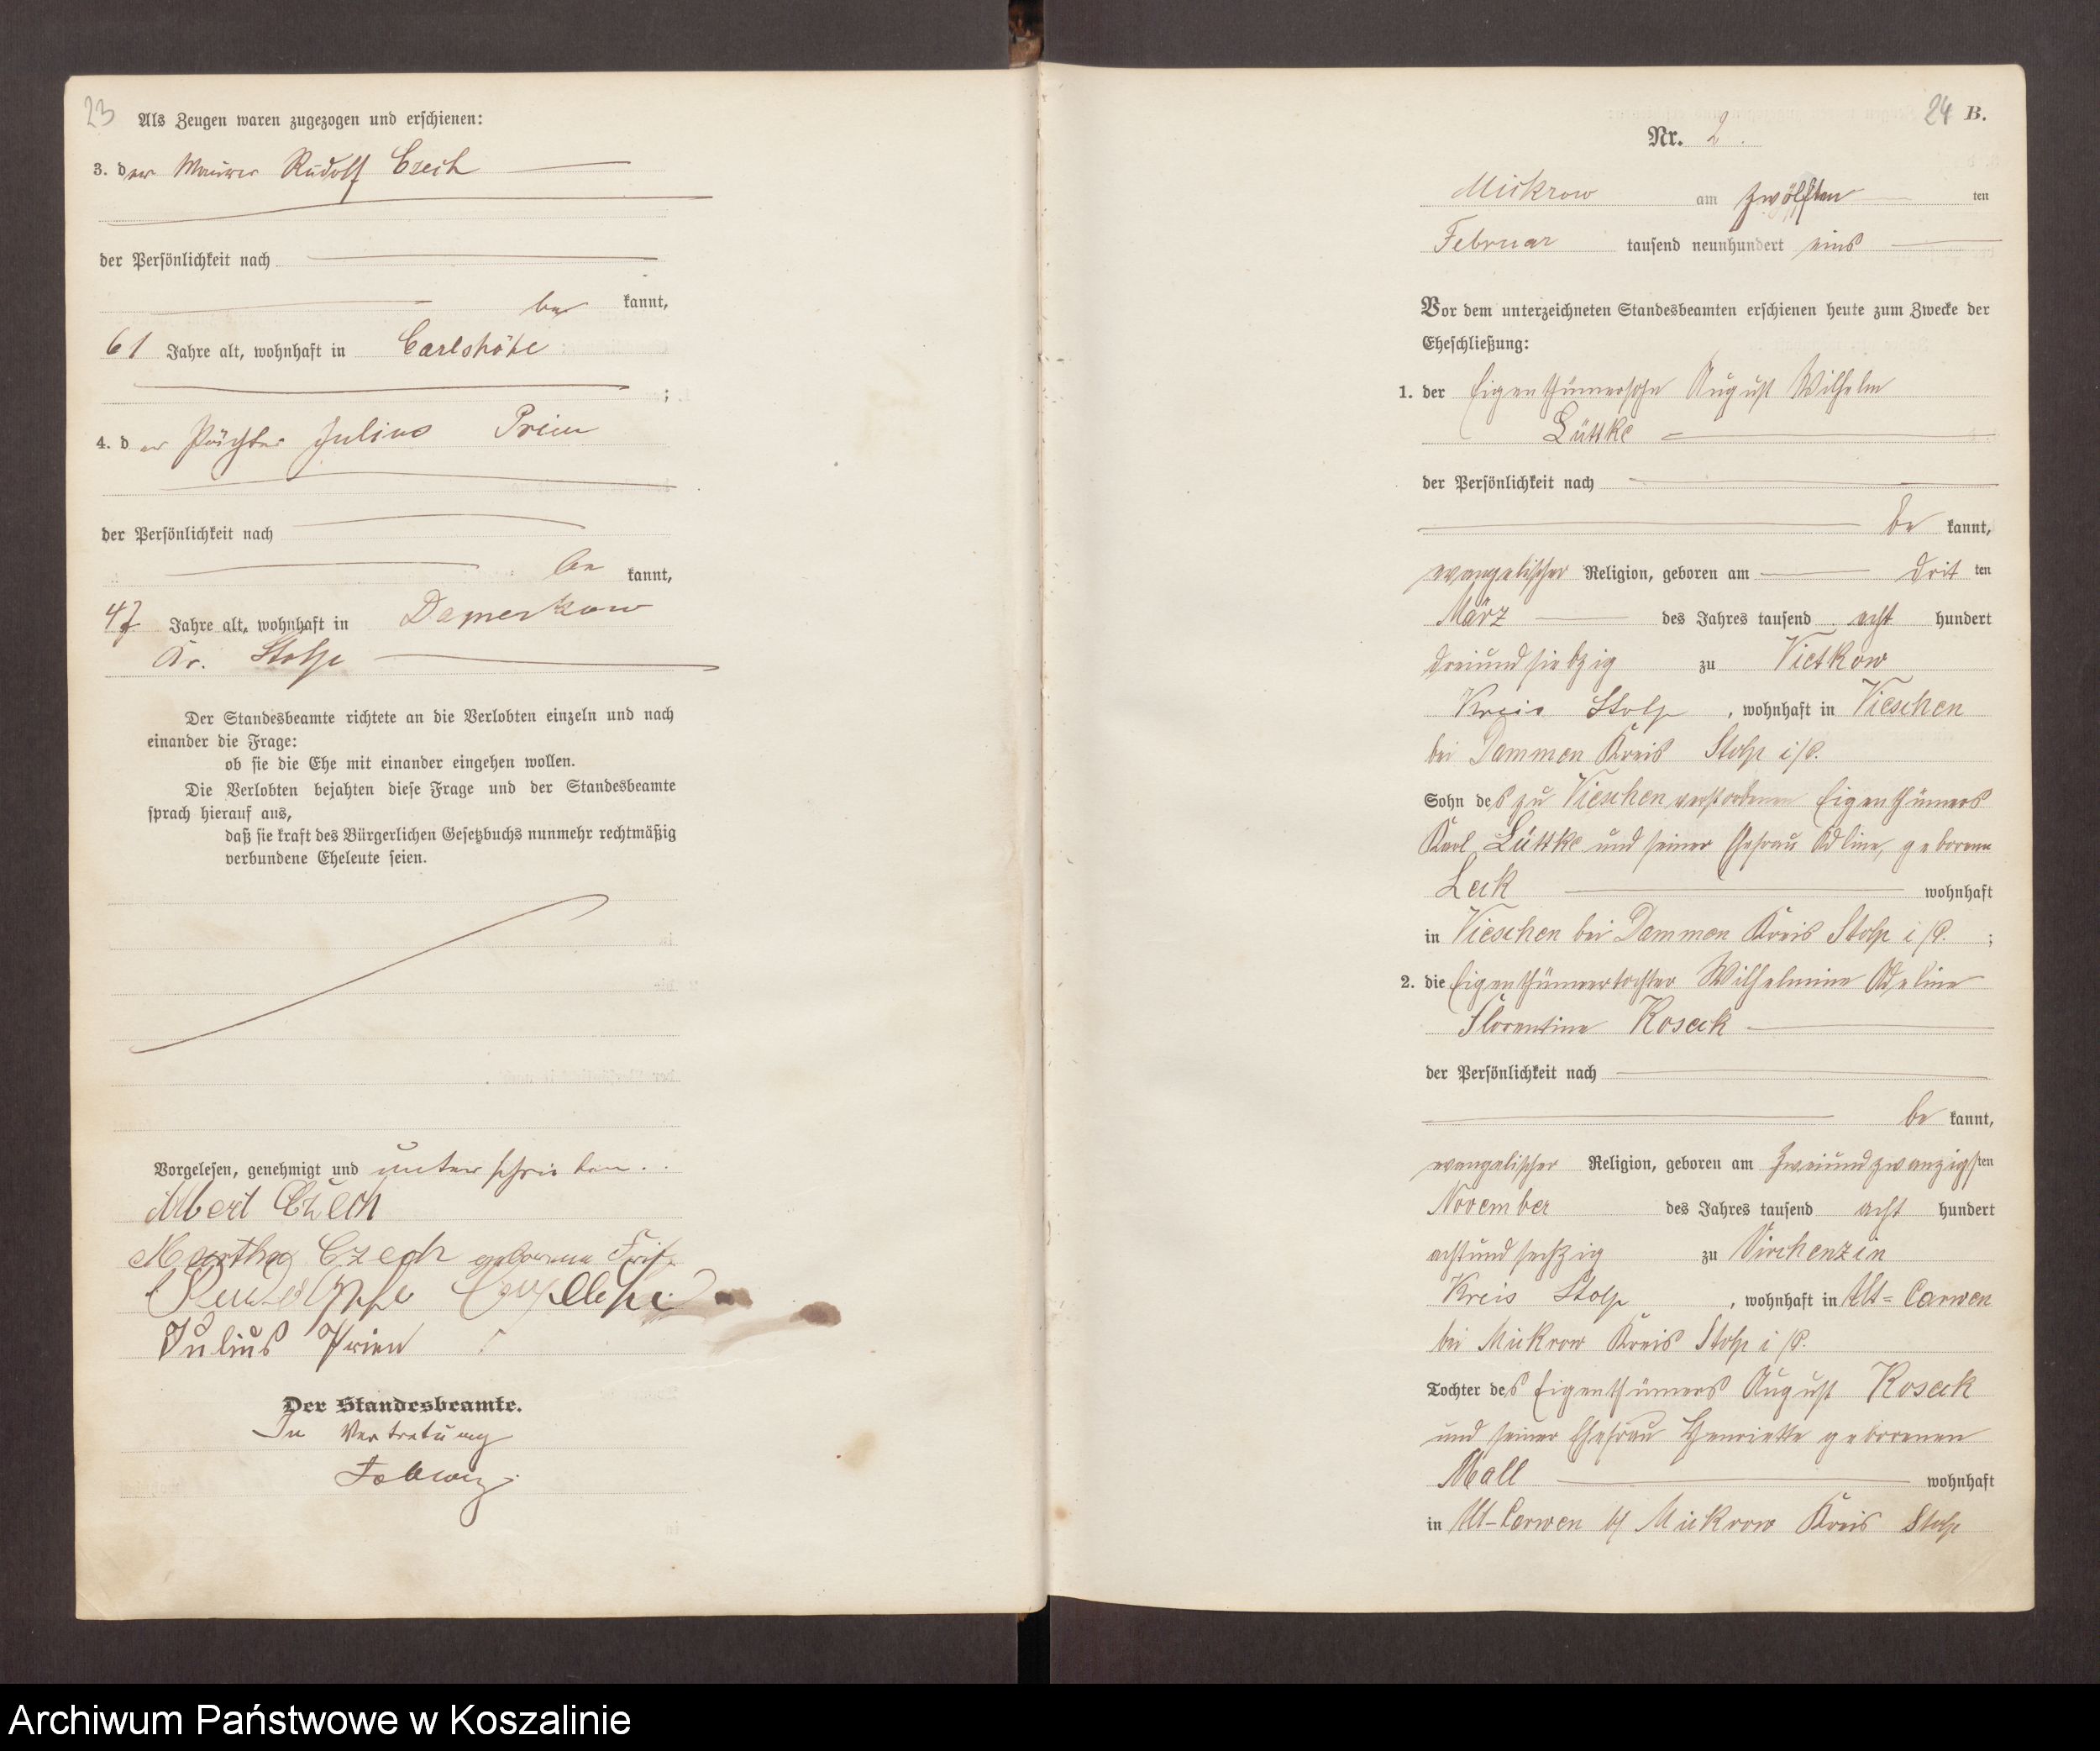 23
Als Zeugen waren zugezogen und erschienen:
3. der Maurer Rudolf Czech
der Persönlichkeit nach
be kannt,
61 Jahre alt, wohnhaft in Carlshöhe
;
4. der Pächter Julius Prien
der Persönlichkeit nach
be kannt,
47 Jahre alt, wohnhaft in Damerkow
Kr. Stolp
Der Standesbeamte richtete an die Verlobten einzeln und nach
einander die Frage:
ob sie die Ehe mit einander eingehen wollen.
Die Verlobten bejahten diese Frage und der Standesbeamte
sprach hierauf aus,
daß sie kraft des Bürgerlichen Gesetzbuchs nunmehr rechtmäßig
verbundene Eheleute seien.
Vorgelesen, genehmigt und unterschrieben.
Albert Czech
Martha Czech geborene
Julius Prien
Der Standesbeamte.
In Vertretung
24 B.
Nr. 2.
Mickrow am zwölften ten
Februar tausend neunhundert eins
Vor dem unterzeichneten Standesbeamten erschienen heute zum Zwecke der
Eheschließung:
1. der Eigenthümersohn August Wilhelm
Lüttke
der Persönlichkeit nach
be kannt,
evangelischer Religion, geboren am drit ten
März des Jahres tausend acht hundert
dreiundsiebzig zu Vietkow
Kreis Stolp, wohnhaft in Vieschen
bei Dammen Kreis Stolp i/P.
Sohn des zu Vieschen verstorbenen Eigenthümers
Karl Lüttke und seiner Ehefrau Adline, geborene
Leik wohnhaft
in Vieschen bei Dammen Kreis Stolp i/P. ;
2. die Eigenthümertochter Wilhelmine Adeline
Florentine Koseik
der Persönlichkeit nach
be kannt,
evangelischer Religion, geboren am zweiundzwanzigsten
November des Jahres tausend acht hundert
achtundsechzig zu Virchenzin
Kreis Stolp, wohnhaft in Alt-Carwen
bei Mickrow Kreis Stolp i/P.
Tochter des Eigenthümers August Koseik
und seiner Ehefrau Henriette geborenen
Mall wohnhaft
in Alt-Carwen b/ Mickrow Kreis Stolp
Archiwum Państwowe w Koszalinie